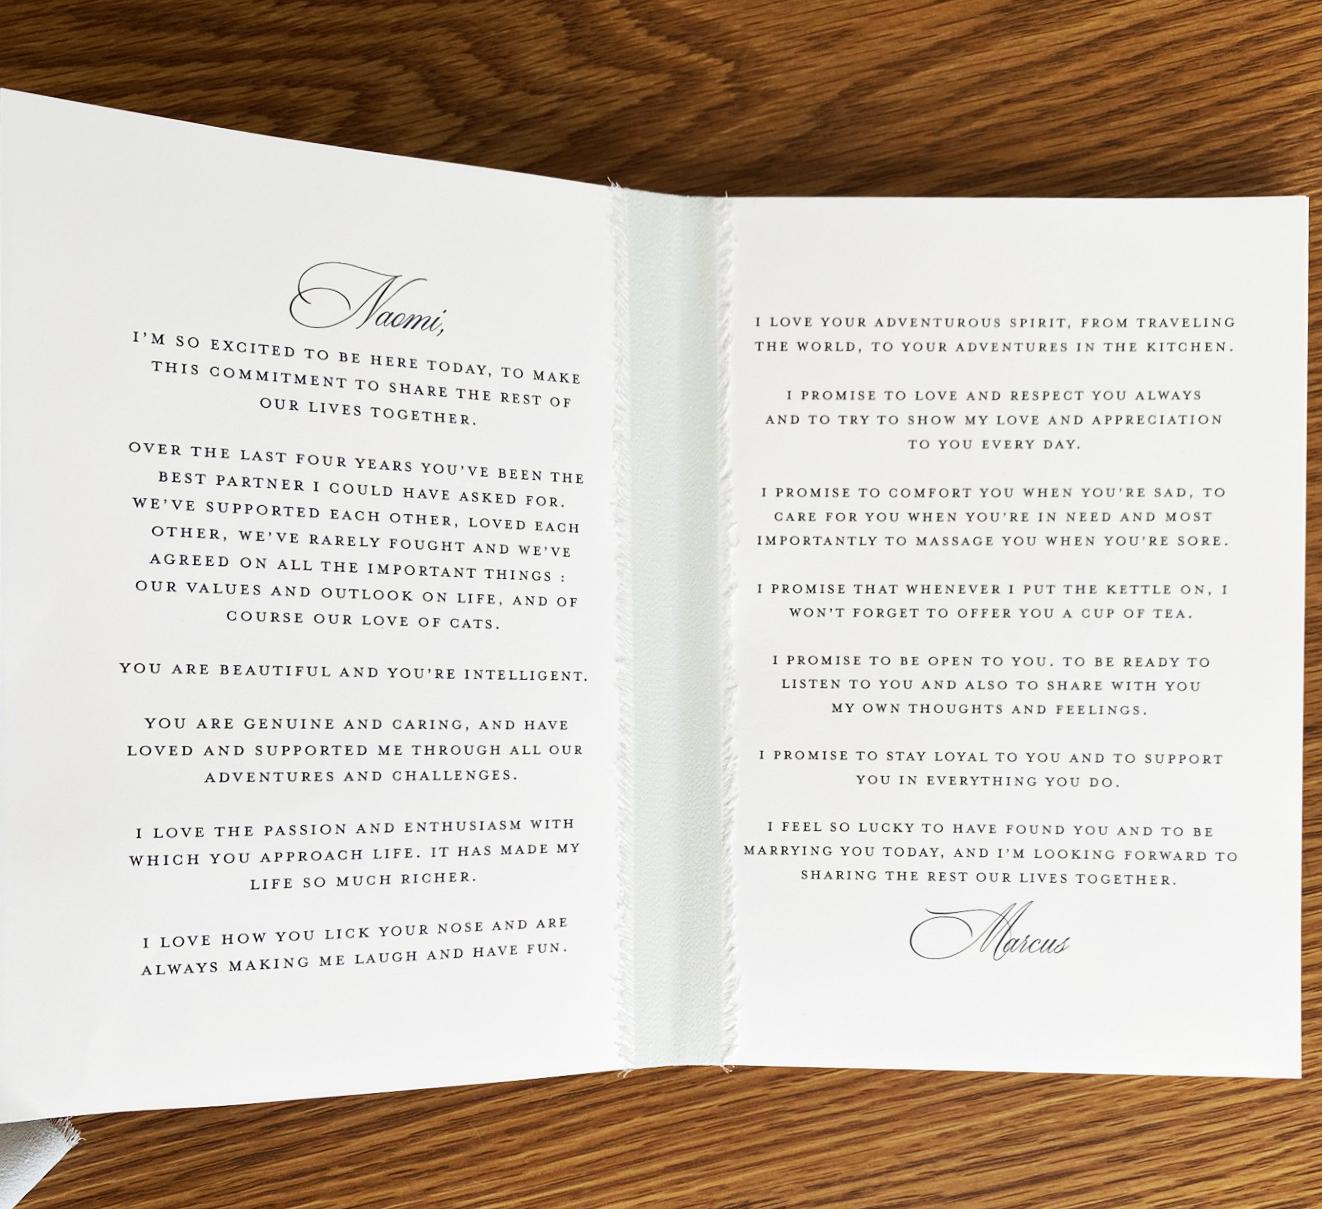 Naomi,
I'M SO EXCITED TO BE HERE TODAY, TO MAKE
THIS COMMITMENT TO SHARE THE REST OF
OUR LIVES TOGETHER.
OVER THE LAST FOUR YEARS YOU'VE BEEN THE
BEST PARTNER I COULD HAVE ASKED FOR.
WE'VE SUPPORTED EACH OTHER, LOVED EACH
OTHER, WE'VE RARELY FOUGHT AND WE'VE
AGREED ON ALL THE IMPORTANT THINGS :
OUR VALUES AND OUTLOOK ON LIFE, AND OF
COURSE OUR LOVE OF CATS.
YOU ARE BEAUTIFUL AND YOU'RE INTELLIGENT.
YOU ARE GENUINE AND CARING, AND HAVE
LOVED AND SUPPORTED ME THROUGH ALL OUR
ADVENTURES AND CHALLENGES.
I LOVE THE PASSION AND ENTHUSIASM WITH
WHICH YOU APPROACH LIFE. IT HAS MADE MY
LIFE SO MUCH RICHER.
I LOVE HOW YOU LICK YOUR NOSE AND ARE
ALWAYS MAKING ME LAUGH AND HAVE FUN.
I LOVE YOUR ADVENTUROUS SPIRIT, FROM TRAVELING
THE WORLD, TO YOUR ADVENTURES IN THE KITCHEN.
I PROMISE TO LOVE AND RESPECT YOU ALWAYS
AND TO TRY TO SHOW MY LOVE AND APPRECIATION
TO YOU EVERY DAY.
I PROMISE TO COMFORT YOU WHEN YOU'RE SAD, TO
CARE FOR YOU WHEN YOU'RE IN NEED AND MOST
IMPORTANTLY TO MASSAGE YOU WHEN YOU'RE SORE.
I PROMISE THAT WHENEVER I PUT THE KETTLE ON, I
WON'T FORGET TO OFFER YOU A CUP OF TEA.
I PROMISE TO BE OPEN TO YOU. TO BE READY TO
LISTEN TO YOU AND ALSO TO SHARE WITH YOU
MY OWN THOUGHTS AND FEELINGS.
I PROMISE TO STAY LOYAL TO YOU AND TO SUPPORT
YOU IN EVERYTHING YOU DO.
I FEEL SO LUCKY TO HAVE FOUND YOU AND TO BE
MARRYING YOU TODAY, AND I'M LOOKING FORWARD TO
SHARING THE REST OUR LIVES TOGETHER.
Marcus